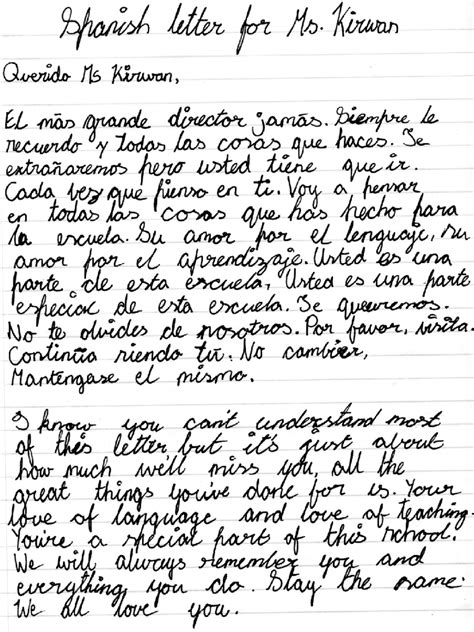 Spanish letter for Ms. Kirwan
Querido Ms Kirwan,
El màs grande director jamàs. Siempre le
recuerdo y todas las cosas que haces. Se
extrañaremos pero usted tiene que ir.
Cada vez que pienso en ti. Voy a pensar
en todas las cosas que has hecho para
la escuela. Su amor por el lenguaje, su
amor por el aprendizaje. Usted es una
parte de esta escuela, Usted es una parte
especial de esta escuela. Se queuremos.
No te olvides de nosotros. Por favor, visita.
Continúa riendo tu. No cambier,
Manténgase el mismo.
I know you can't understand most
of this letter but it's just about
how much we'll miss you, all the
great things you've done for us. Your
love of language and love of teaching.
You're a special part of this school.
We will always remember you and
everything you do. Stay the same.
We all love you.